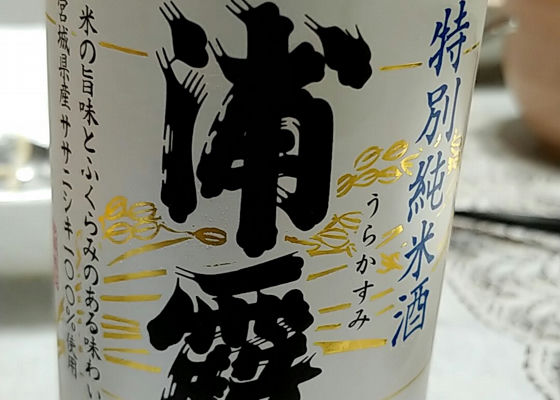 特別純米酒
うらかすみ
浦霞
米の旨味とふくらみのある味わい
宮城県産ササニシキ一〇〇%使用